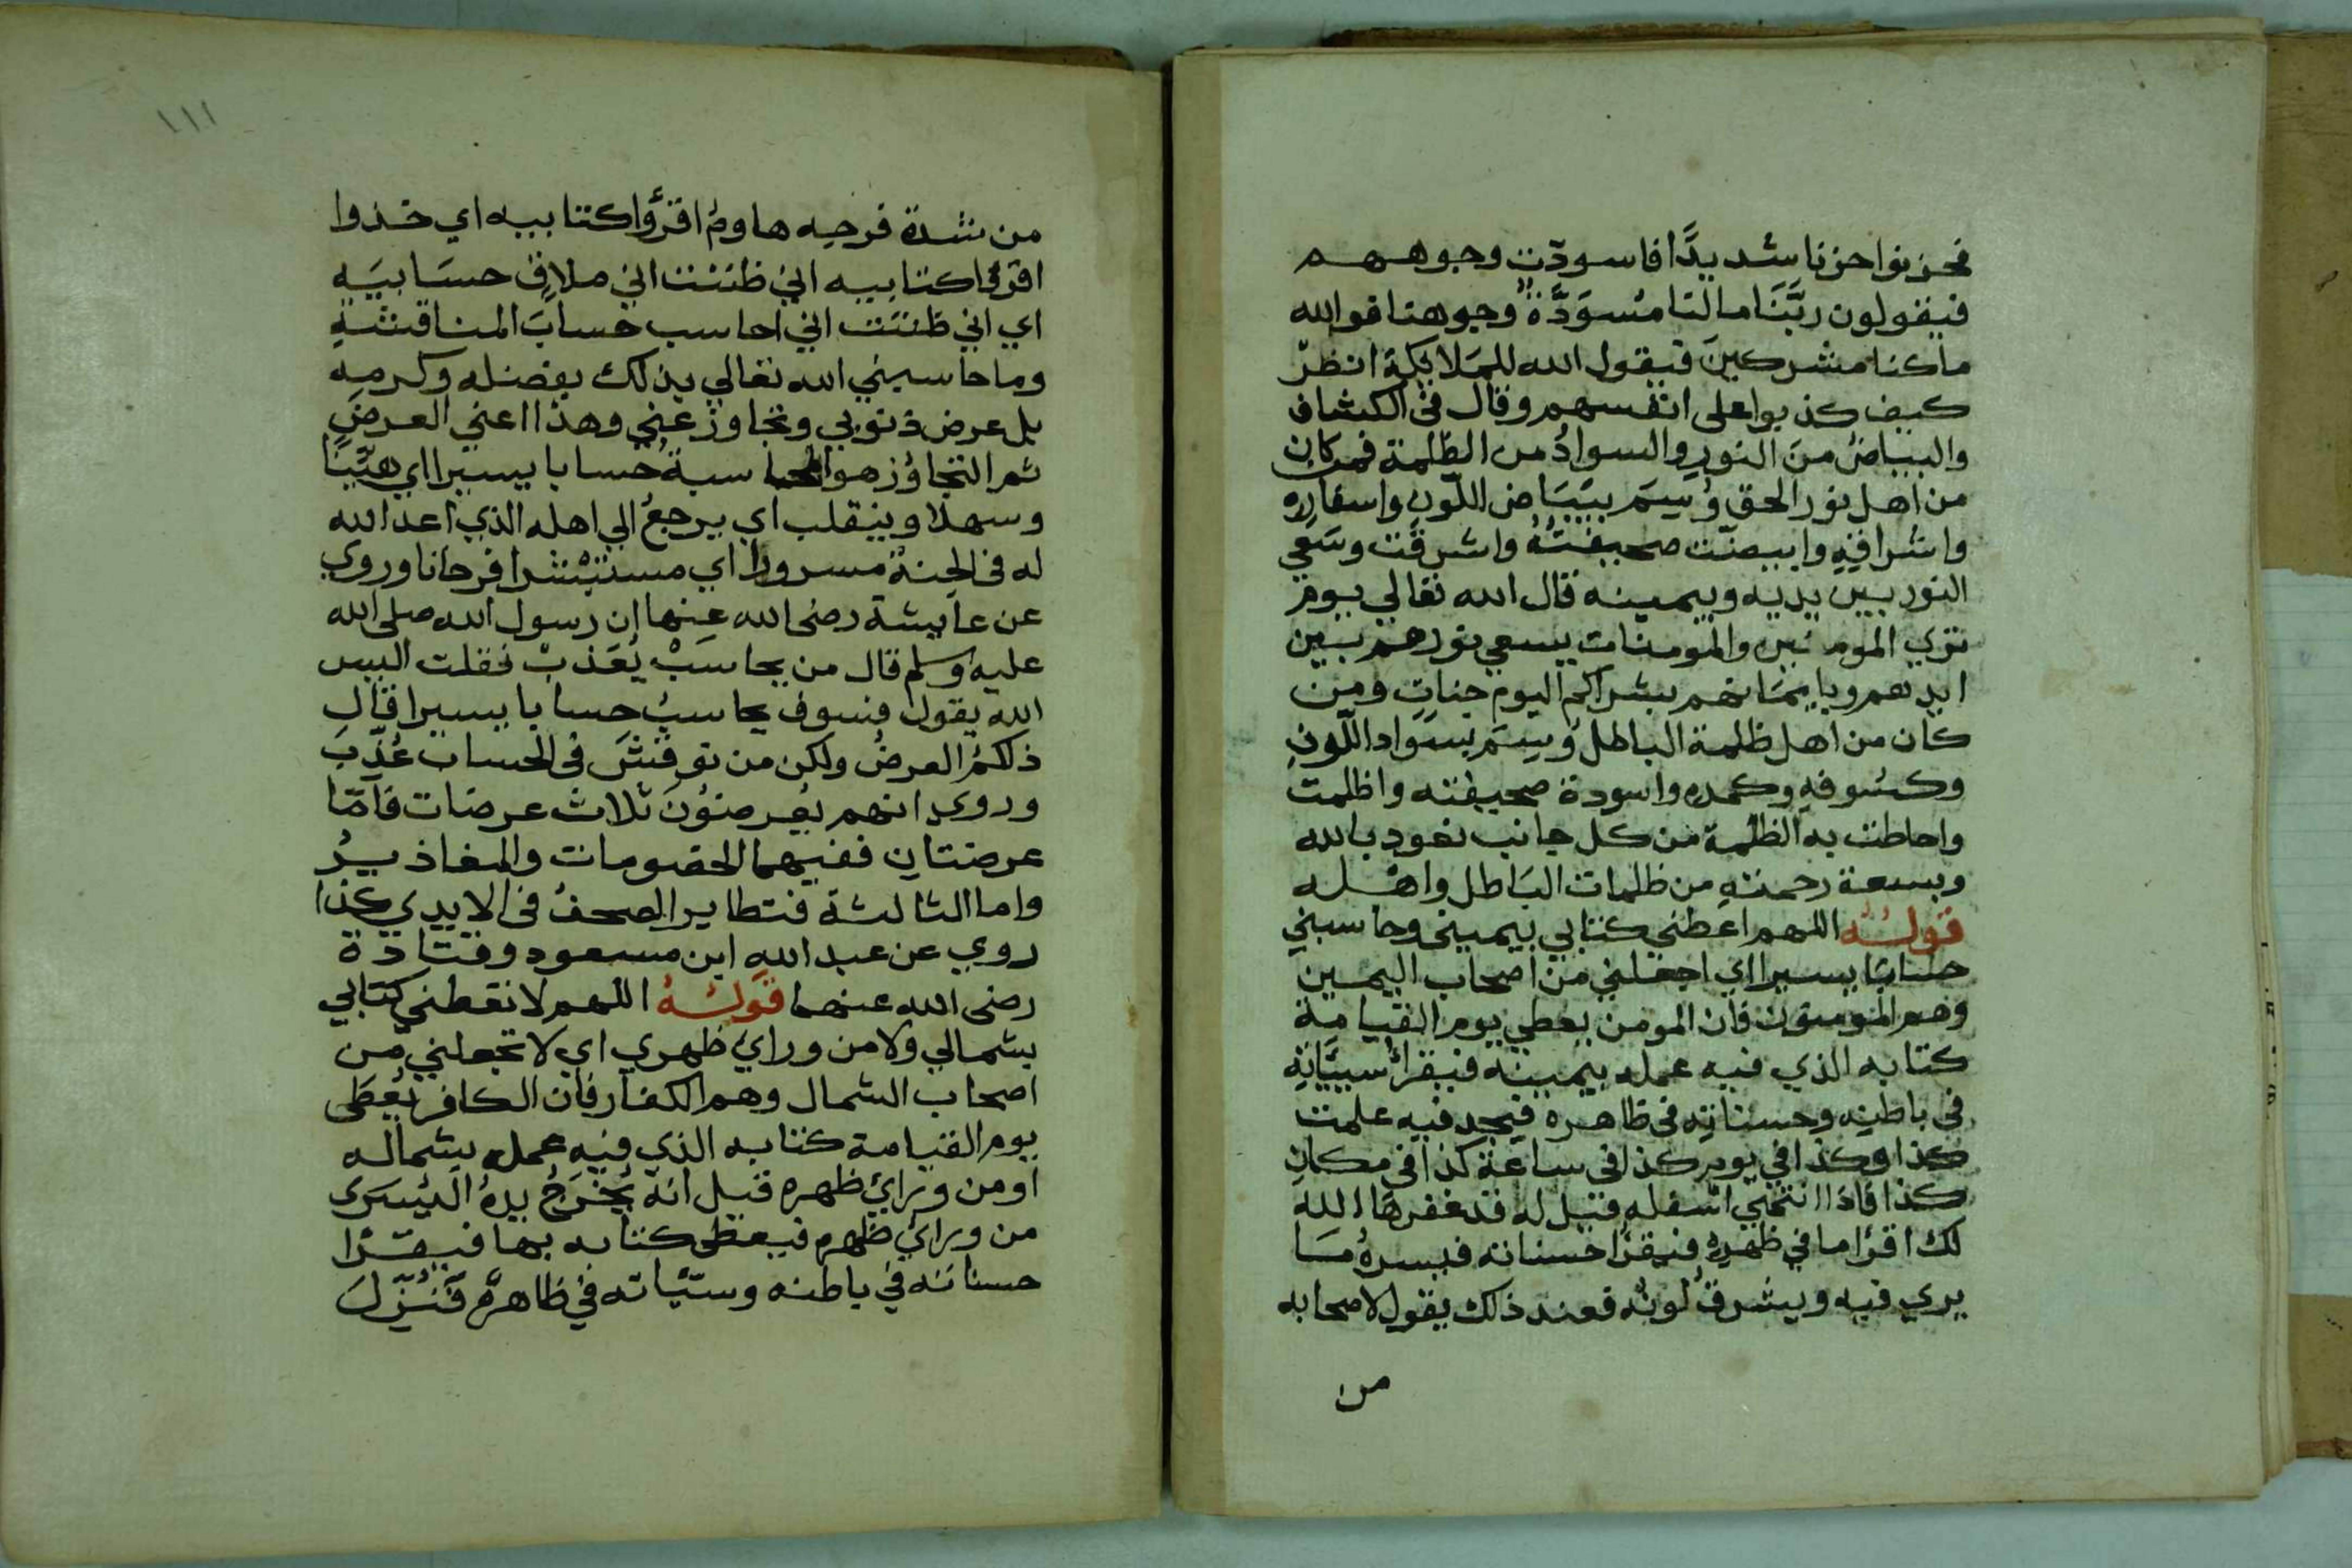 فحزنوا حزنا شديدًا فاسودّت وجوههم
فيقولون ربَّنَا مالنا مُسوَدَّةٌ وجوهنا فوالله
ماكنا مشركينَ فيقول الله للمَلايكة انظرْ
كيف كذبوا على انفسهم وقال فى الكشاف
والبياضُ منَ النورِ والسوادُ من الظلمة فمن كان
من اهل نور الحق وُسِمَ ببَيَاض اللّون واسفاره
واشراقِهِ وابيضّت صحيفتُهُ واشرقت وسَعي
النور بين يديه وبيمينه قال الله تعالي يوم
تري المومنين والمومنات يسعي نورهم بين
ايديهم وبايمَانهم بشراكم اليوم جناتٍ ومن
كان من اهل ظلمة الباطل وُسِمَ بسَواد اللّونِ
وكسُوفهِ وكمده واسودة صحيفته واظلمت
واحاطت به الظلمة من كل جانب نعوذ بالله
وبسعة رحمتهِ من ظلمات البَاطل واهله
قولهُ اللهم اعطني كتابي بيمينى وحاسبني
حسابًا يسيرا اي اجعلني من اصحاب اليمين
وهم المومنون فان المومن يعطي يوم القيامة
كتابه الذي فيه عمله بيمينه فيقرأ سيّاته
فى باطنه وحسناتِه فى ظاهره فيجد فيه علمت
كذا وكذا في يوم كذا فى ساعة كذا في مكانِ
كذا فاذا انتهي اسفله قيل له قد غفرهَا الله
لك اقرا ما في ظهره فيقرا حسناته فيسرهُ مَا
يري فيه ويشرقُ لونُه فعند ذلك يقول لاصحابه
من
١١١
من شدة فرحِه هاومُ اقرؤا كتابيه اي خذوا
اقرؤا كتابيه اني ظننت اني ملاقٍ حسَابيَه
اي اني ظننت اني احاسب حسابَ المناقشةِ
وما حاسبني الله تعالي بذلك بفضله وكرمِه
بل عرض ذنوبي وتجاوز عني وهذا اعني العرضَ
ثم التجاوُز هو المحاسبةُ حسابا يسيرا اي هيّنًا
وسهلا وينقلب اي يرجعُ الي اهله الذي اعد الله
له فى الجنة مسرورا اي مستبْشرا فرحانا وروي
عن عايشة رضى الله عنها ان رسول الله صلى الله
عليه وسلم قال من يحاسَبْ يُعَذبْ فقلت اليس
الله يقول فسوف يحاسبُ حسابا يسيرا قال
ذلكمُ العرضُ ولكن من نوقشَ فى الحساب عُذّبَ
وروى انهم يُعرضُونَ ثلاث عرضات فامّا
عرضتان ففيهما الخصومات والمعاذيرُ
واما الثالثة فتطاير الصحفُ فى الايدي كذا
روي عن عبد الله ابن مسعود وقتادة
رضى الله عنهما قولهُ اللهم لا تعطني كتابي
بشمالي ولا من ورائ ظهري اي لا تجعلني من
اصحاب الشمال وهم الكفار فان الكافر يُعطَى
يوم القيامة كتابه الذي فيه عمله بشماله
او من ورائ ظهره قيل انه يُخْرَجُ يدهُ اليُسرَى
من ورائ ظهره فيعطى كتابه بها فيقرا
حسناته في باطنه وسيّئاته في ظاهره